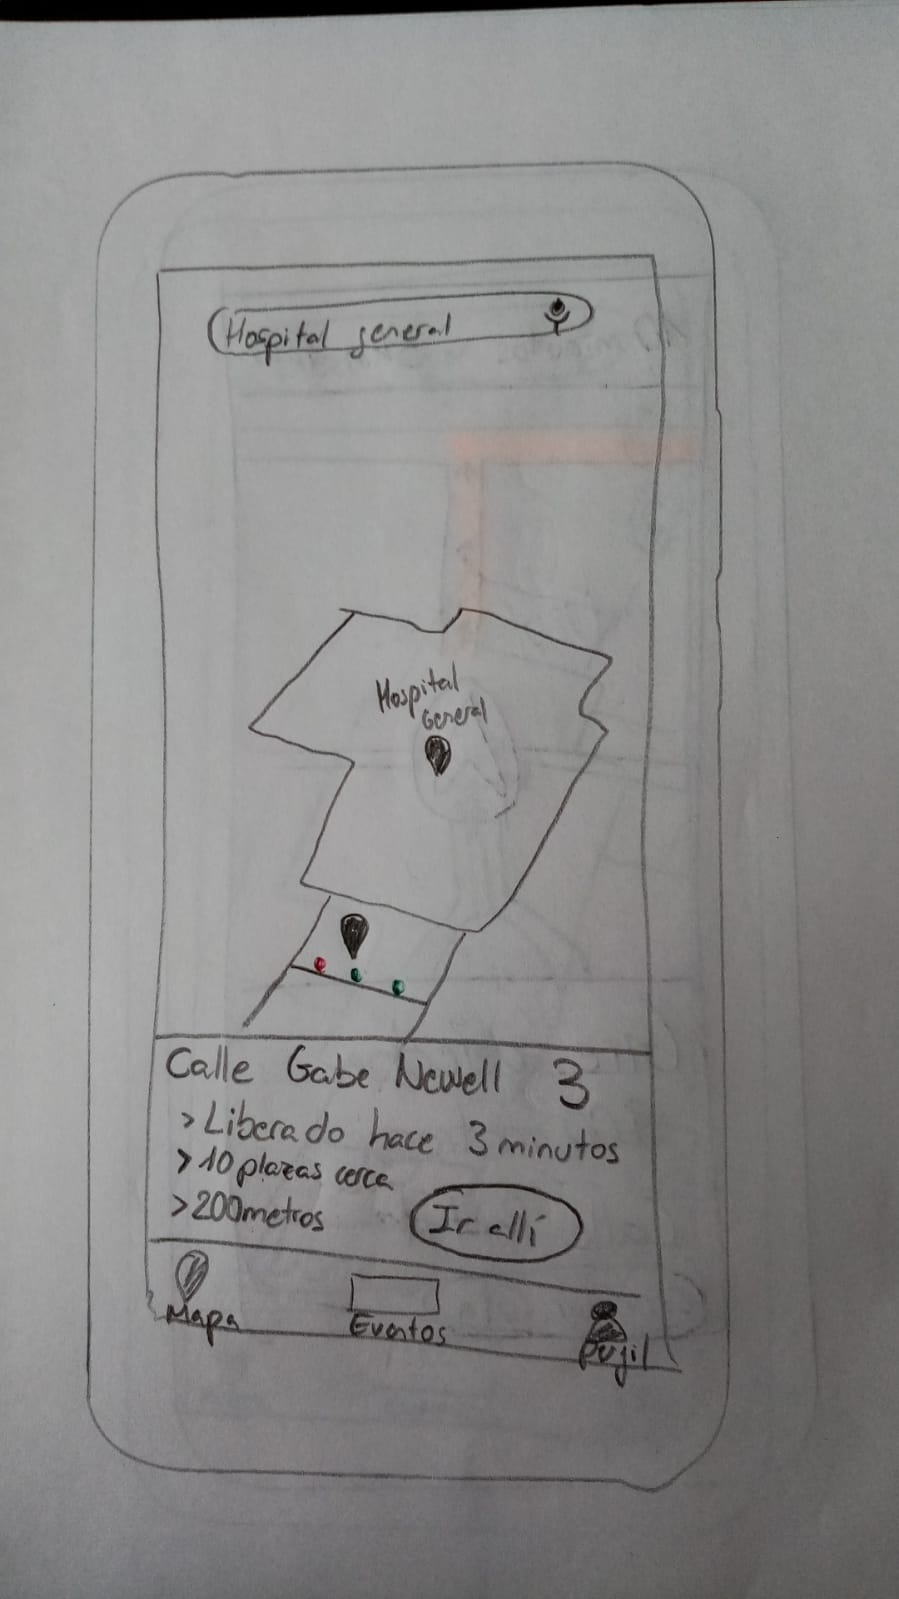 Hospital general
Hospital
General
Calle Gabe Newell 3
> Liberado hace 3 minutos
> 10 plazas cerca
> 200metros
Ir allí
Mapa
Eventos
Perfil